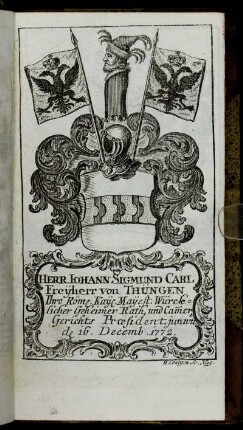 HERR IOHANN SIGMUND CARL
Freÿherr von THÜNGEN
Ihro Röm. Kaÿs. Mayest. Würck=
licher Geheimer Rath, und Camer
Gerichts Præsident,
de 16. Decemb. 1772.